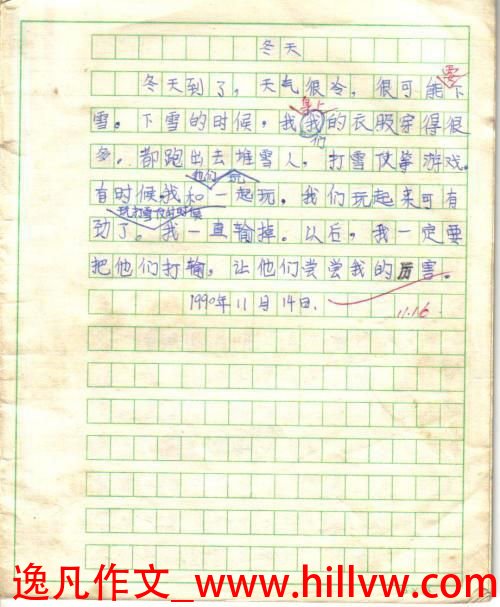 冬天
要
冬天到了，天气很冷，很可能下
身上
雪。下雪的时候，我我的衣服穿得很
们
多。都跑出去堆雪人，打雪仗拿游戏。
他们 玩
有时候,我和一起玩。我们玩起来可有
玩打雪仗的时候
劲了。我一直输掉。以后，我一定要
把他们打输，让他们尝尝我的厉害。
1990年11月14日.
11.16
逸凡作文_www.hillvw.com